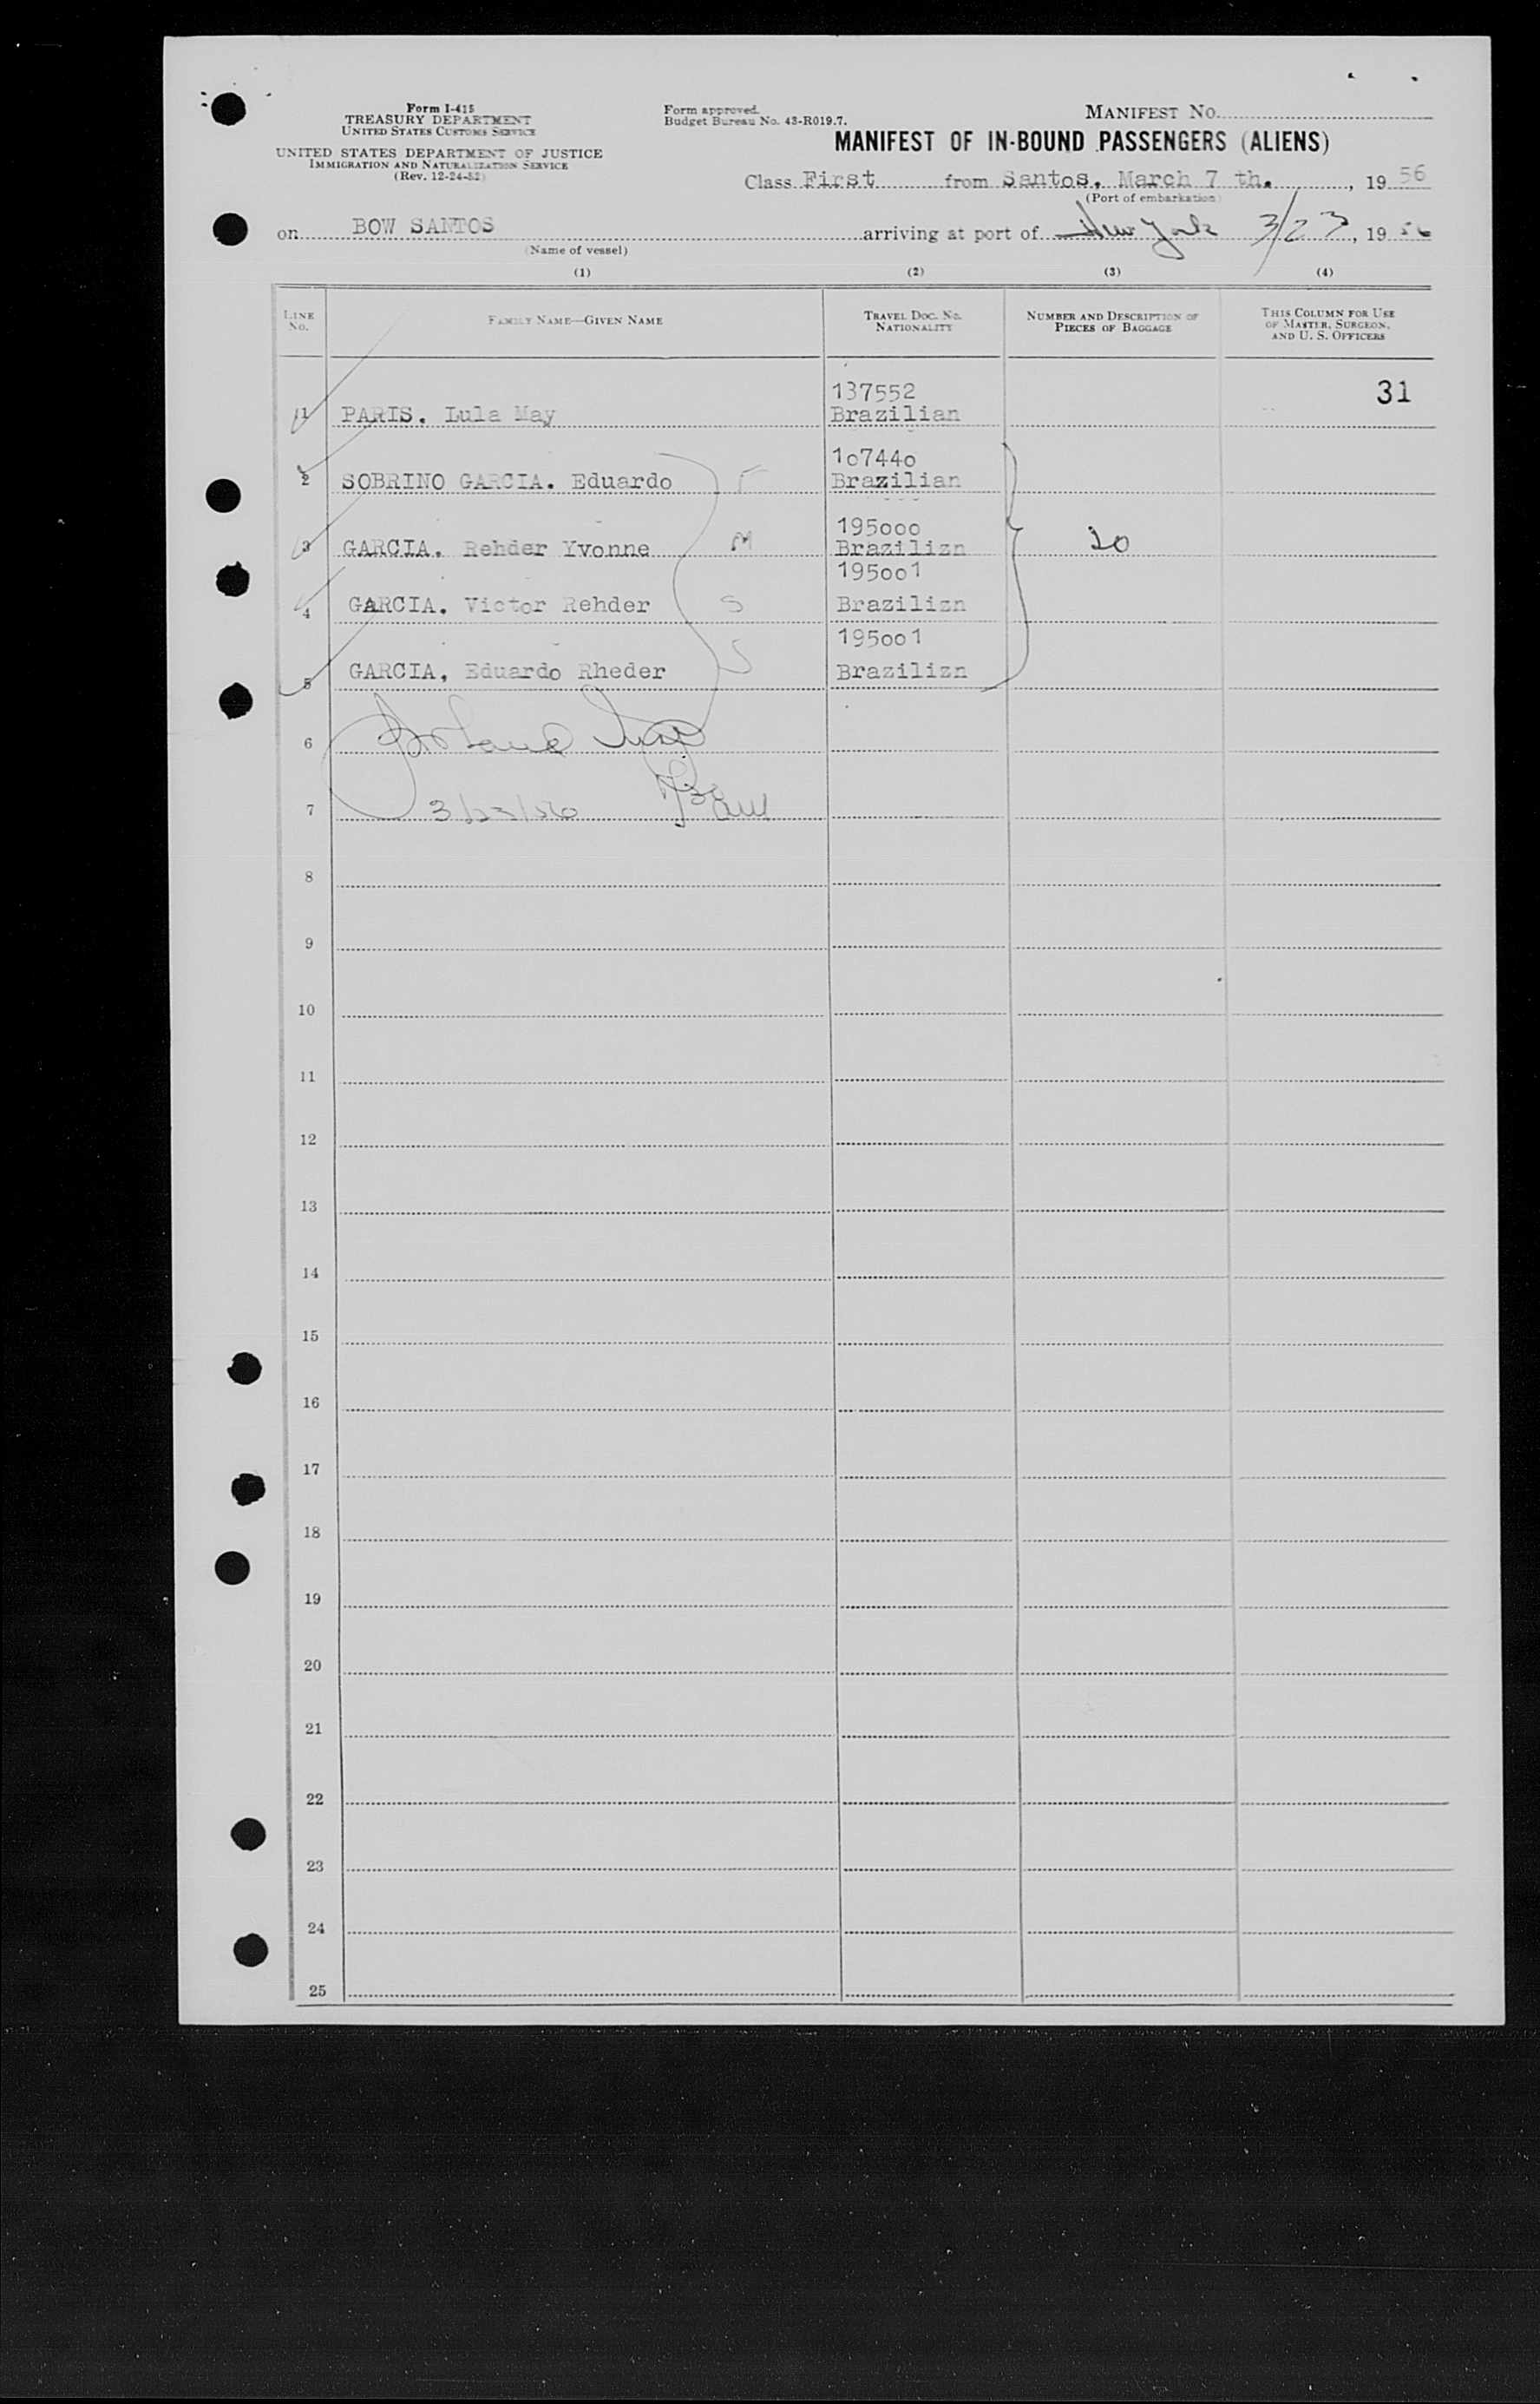 Form I-415
TREASURY DEPARTMENT
UNITED STATES CUSTOMS SERVICE
UNITED STATES DEPARTMENT OF JUSTICE
IMMIGRATION AND NATURALIZATION SERVICE
(Rev. 12-24-52)
Form approved.
Budget Bureau No. 43-R019.7.
MANIFEST NO.
MANIFEST OF IN-BOUND PASSENGERS (ALIENS)
Class First from Santos, March 7 th. , 19 56
(Port of embarkation)
on BOW SANTOS arriving at port of New York 3/23, 19 56
(Name of vessel)
(1) (2) (3) (4)
LINE NO. FAMILY NAME—GIVEN NAME TRAVEL DOC. NO. NATIONALITY NUMBER AND DESCRIPTION OF PIECES OF BAGGAGE THIS COLUMN FOR USE OF MASTER, SURGEON, AND U. S. OFFICERS
137552 31
1 PARIS. Lula May Brazilian
1o744o
2 SOBRINO GARCIA. Eduardo F Brazilian
195ooo
3 GARCIA. Rehder Yvonne M Brazilizn 20
195oo1
4 GARCIA. Victor Rehder S Brazilizn
195oo1
5 GARCIA, Eduardo Rheder S Brazilizn
6
7 3/23/56
8
9
10
11
12
13
14
15
16
17
18
19
20
21
22
23
24
25